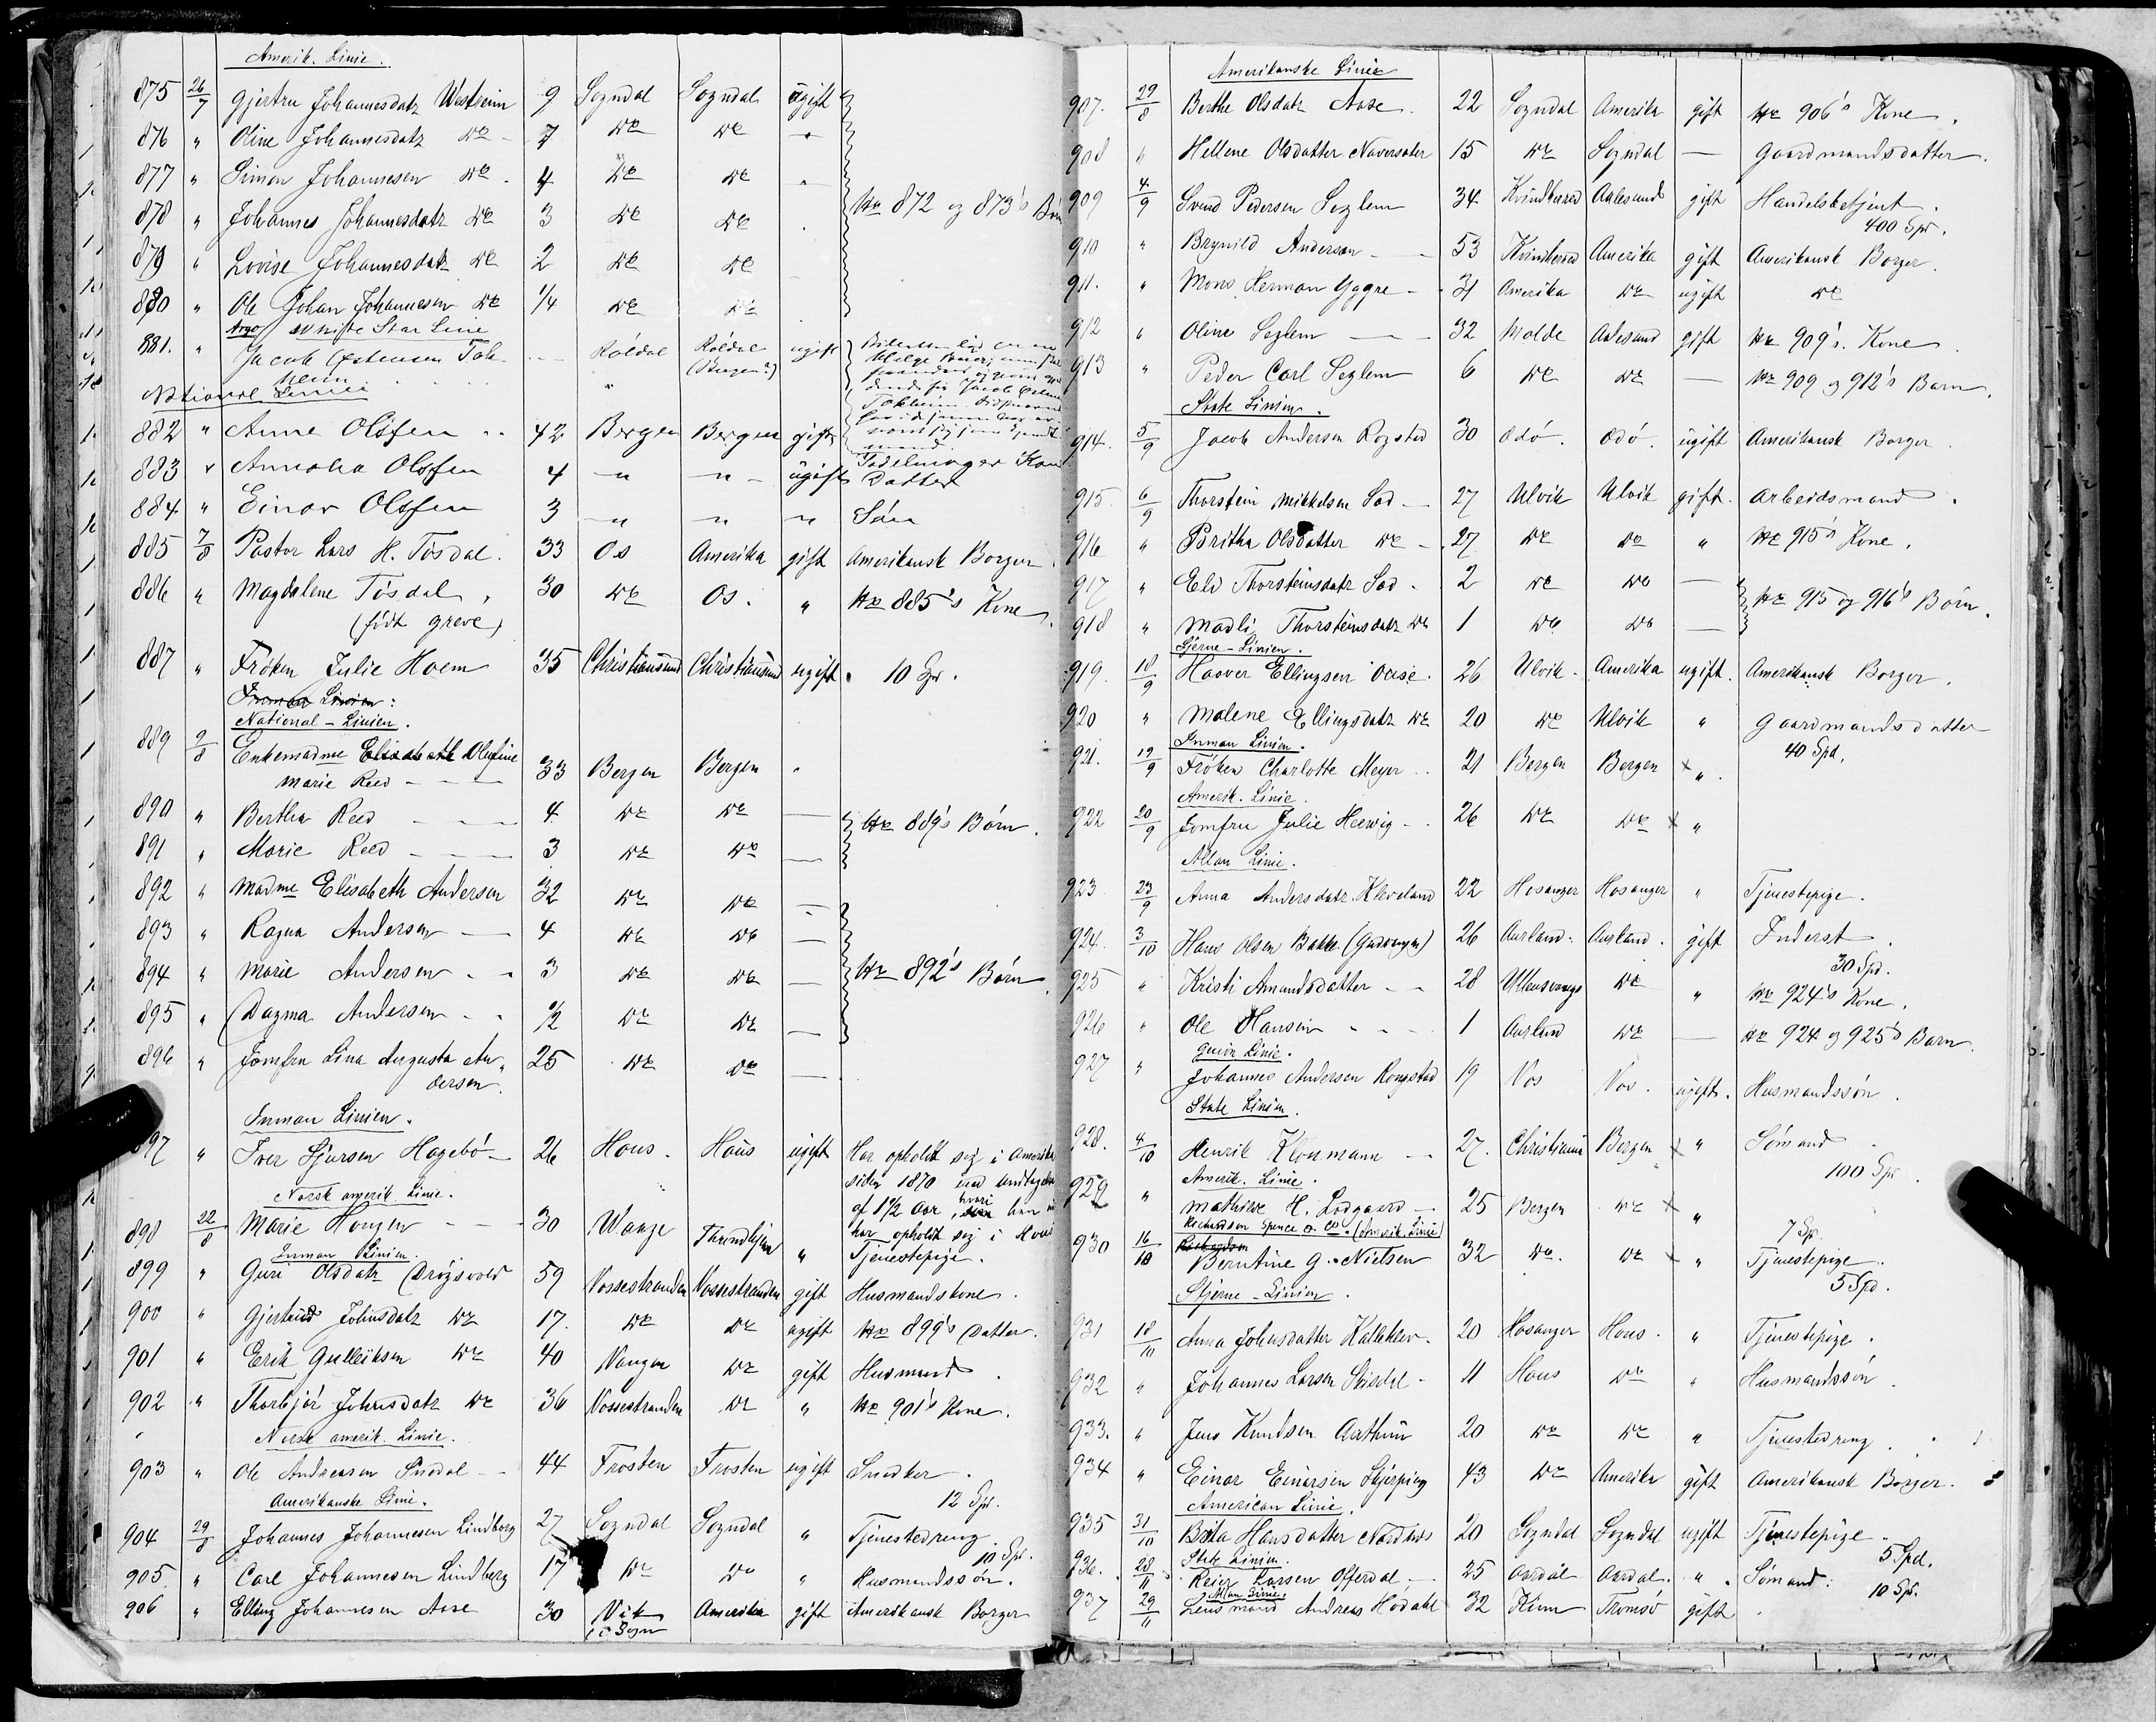 Amerik. Linie.
875 26/7 Gjertru Johannesdatr Westreim 9 Sogndal Sogndal ugift
876 " Oline Johannesdatr do - 7 do do "
877 " Simon Johannesen do - 4 do do
878 " Johannes Johannesdatr do 3 do do No 872 og 873's Børn
879 " Lovise Johannesdatr do 2 do do
880 " Ole Johan Johannesen do 1/4 do do
Argo White Star Line
881. " Jacob Østensen Tok- Røldal Røldal ugift
heim (Bergen?)
National Linie
882 " Anne Olsen 42 Bergen Bergen gift
883 " Annoka Olsen 4 " " ugift Datter
884 " Einar Olsen 3 " " " Søn
885 7/8 Pastor Lars H. Tøsdal. 33 Os Amerika gift Amerikansk Borger.
886 " Magdalene Tøsdal, 30 do Os. " No 885's Kone.
(født Greve)
887 " Frøken Julie Hoem 35 Christiansund Christiansund ugift. 10 Spr.
Inman Linien:
National-Linien.
889 9/8 Enkemadme Elisabeth Olufine
Marie Reed - 33 Bergen Bergen
890 " Bertha Reed 4 do do — No 889's Børn.
891 " Marie Reed 3 do do —
892 " Madme Elisabeth Andersen 32 do do —
893 " Ragna Andersen 4 do do —
894 " Marie Andersen 3 do do — No 892's Børn
895 " Dagma Andersen 1/2 do do —
896 " Jomfru Lina Augusta An- 25 do do —
dersen.
Inman Linien.
897 " Iver Sjursen Hagebø 26 Hous. Hous ugift Har opholdt sig i Amerika
siden 1870 med undtagelse
Norsk amerik. Linie. af 1 1/2 Aar, hvori han
898 22/8 Marie Hongen 30 Wange Throndhjem " har opholdt sig i Hous
Tjenestepige.
Inman Linien.
899 " Guri Olsdatr Drøgsvold 59 Vossestranden Vossestranden gift Husmandskone.
900 " Gjertrud Johnsdatr do 17. do do ugift No 899's Datter.
901 " Erik Gulleiksen do 40 Vangen do gift Husmand.
902 " Thorbjør Johnsdatr do 36 Vossestranden do " No 901's Kone.
Norsk amerik. Linie.
903 " Ole Andreasen Snedal 44 Frosten Frosten ugift Snedker.
Amerikanske Linie. 12 Spr.
904 29/8 Johannes Johannesen Lindborg 27 Sogndal Sogndal " Tjenestedreng
10 Spd.
905 " Carl Johannesen Lindberg 17 do do " Husmandssøn.
906 " Elling Johannesen Aase 30 Vik Amerika gift Amerikansk Borger
i Sogn
Amerikanske Linie
907. 29/8 Berthe Olsdatr Aase. 22 Sogndal Amerika gift No 906's Kone.
908 " Hellene Olsdatter Naversater 15 do Sogndal — Gaardmandsdatter.
909 4/9 Svend Pedersen Sezlem 34 Kvindherred Aalesund gift Handelsbetjent.
400 Spr.
910 " Brynild Andersen 53 Kvindherred Amerika gift Amerikansk Borger.
911. " Mons Herman Gygre 31 Amerika do ugift do
912 " Oline Sezlem 32 Molde Aalesund gift No 909's. Kone
913 " Peder Carl Sezlem 6 do do — No 909 og 912's Barn.
State Linien.
914. 5/9 Jacob Andersen Rogsted 30 Odø. Odø. ugift Amerikansk Borger
915. 6/9 Thorstein Mikkelsen Sod 27 Ulvik Ulvik gift. Arbeidsmand.
916 " Boritha Olsdatter do 27 do do " No 915's Kone.
917 " Eli Thorsteinsdatr Sod. 2 do do — No 915 og 916's Børn.
918 " Madli Thorsteinsdatr do 1 do do —
Stjerne-Linien.
919. 18/9 Haaver Ellingsen Ouse. 26 Ulvik. Amerika ugift. Amerikansk Borger.
920 " Malene Ellingsdatr do 20 do Ulvik " Gaardmandsdatter
Inman Linien. 40 Spd.
921. 19/9 Frøken Charlotte Meyer 21 Bergen Bergen x "
Amerik. Linie.
922 20/9 Jomfru Julie Herwig 26 do do x "
Allan Linie.
923 23/9 Anna Andersdatr Kleveland 22 Hosanger Hosanger " Tjenestepige.
924. 3/10 Hans Olsen Bakke (Gudvangen) 26 Aurland. Aurland. gift Inderst.
30 Spd.
925 " Kristi Amundsdatter 28 Ullensvangs do " No 924's Kone.
926 " Ole Hansen 1 Aurland do — No 924 og 925's Barn.
Guion Linie.
927 " Johannes Andersen Rongstad 19 Vos Vos. ugift. Husmandssøn.
State Linien.
928. 4/10 Henrik Klosmann 27. Christiania Bergen x " Sømand
Amerik. Linie. 100 Spr.
929 " Mathiese H. Lodgaard 25 Bergen do x "
Richardson Spence & Co. (Amerik. Linie) 7 Sp.
930 16/10 Berntine G. Nielsen 32 do. do x " Tjenestepige.
Stjerne-Linien. 5 Spd.
931 18/10 Anna Johnsdatter Kalleklev. 20 Hosanger Hous. " Tjenestepige.
932 " Johannes Larsen Skisdal 11 Hous do " Husmandssøn
933. " Jens Knudsen Aarthun 20 do do " Tjenestedreng.
934 " Einar Einarsen Skjerping 43 do Amerika gift Amerikansk Borger.
American Linie.
935 31/10 Brita Hansdatter Nordnes 20 Sogndal Sogndal ugift Tjenestepige.
State Linien. 5 Spd.
936. 28/11 Reier Larsen Offerdal 25 Aardal Aardal. " Sømand:
Allan Linie. 10 Spr.
937 29/11 Lensmand Andreas Hödahl 32 Kinn Tromsø gift